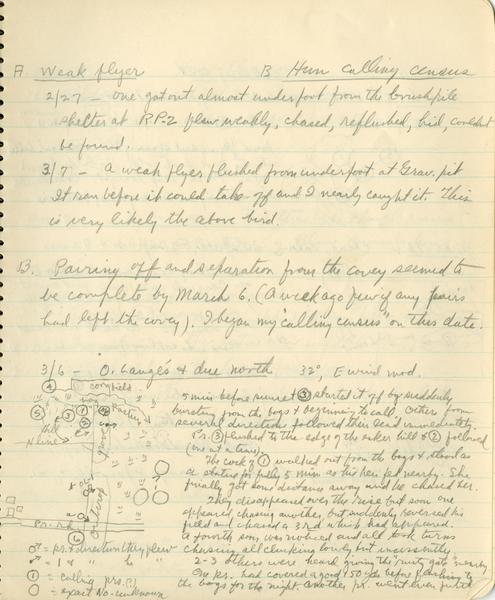 A Weak flyer B Hun calling census
2/27 — one got out almost underfoot from the brushpile
shelter at RP-2 flew weakly, chased, reflushed, hid, couldn't
be found.
3/7 — a weak flyer flushed from underfoot at Grav. pit
It ran before it could take off and I nearly caught it. This
is very likely the above bird.
B. Pairing off and separation from the covey seemed to
be complete by March 6. (A week ago few if any pairs
had left the covey). I began my "calling census" on this date.
3/6 — O. Lange's & due north 32°, E wind mod.
cornfield
5 min before sunset ③ started it off by suddenly
bursting from the bogs & beginning to call. Others from
several directions followed their lead immediately.
Pr. ③ flushed to the edge of the oker hill & ② followed
(one at a time).
The cock of ① walked out from the bogs & stood as
a statue for fully 5 min as his hen fed nearby. She
finally got some distance away and he chased her.
They disappeared over the rise but soon one
appeared chasing another, but suddenly reversed his
field and chased a 3rd which had appeared.
A fourth soon was noticed and all took turns
chasing, all clucking lowly but incessantly
2-3 others were heard giving the "rusty gate" nearby
One pr. had covered a good 150 yds before flushing to
the bogs for the night. Another pr. went even farther
Pr. rd
= pr. & direction they flew
= 1 " " "
① = calling prs.
○ = exact No. unknown